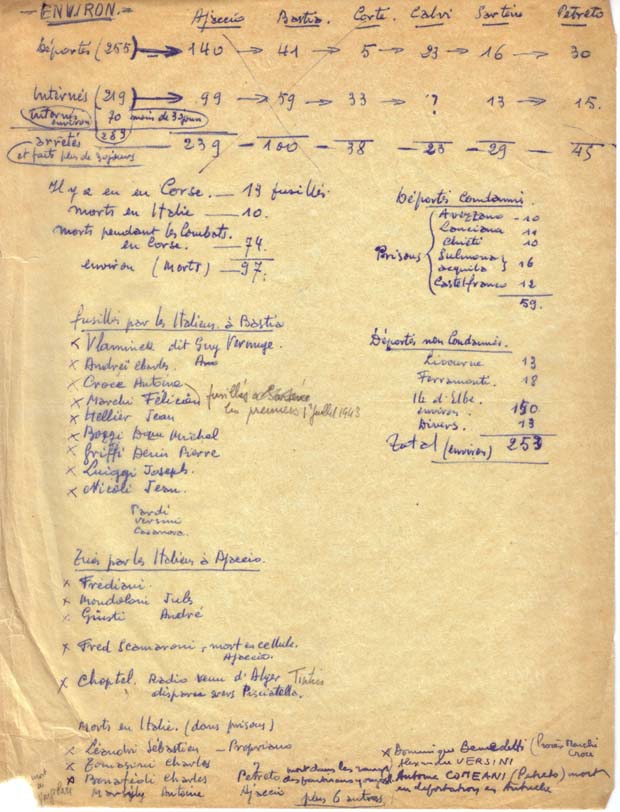 - ENVIRON. - Ajaccio Bastia. Corte. Calvi Sartène Petreto
Déportés (255) → 140 → 41 → 5 → 23 → 16 → 30
Internés (219) → 99 → 59 → 33 → ? 13 → 15.
Internés environ 70 moins de 30 jours
arrêtés 289
et faits plus de 30 jours 239 - 100 - 38 - 23 - 29 - 45
Il y a eu en Corse. — 13 fusillés
morts en Italie — 10.
morts pendant les Combats.
en Corse. — 74
environ (Morts) — 97.
Déportés Condamnés.
Prisons
Avezzano - 10
Lanciana 11
Chieti 10
Sulmona
acquila 16
Castelfranco 12
59.
fusillés par les Italiens à Bastia
x Vlaminck dit Guy Vermuge.
x Andreï Charles.
x Croce Antoine
x Marchi Félicien
fusillés à
les premiers 1° juillet 1943
x Hellier Jean
x Bozzi Michel
x Griffi Denis Pierre
x Luiggi Joseph.
x Nicoli Jean.
Pardi
Versini
Casanova.
Déportés non Condamnés.
Livourne 13
Ferramonti. 18
Ile d'Elbe.
environ. 150
Divers. 13
Total (environ) 253
Tués par les Italiens à Ajaccio.
x Frediani.
x Mondoloni Jules
x Giusti André
x Fred Scamaroni, mort en cellule.
Ajaccio.
x Choptel. Radio venu d'Alger
disparu vers Pisciatella.
Morts en Italie. (dans prisons)
x Léandri Sébastien - Propriano
x Tomasini Charles ?
x Bonafédi Charles Petreto
Marsily Antoine Ajaccio
mort dans les camps
plus 6 autres.
x Dominique Benedetti (Procès Marchi
Croce
Alexandre VERSINI
Antoine COMEANI (Petreto) mort
en déportation en